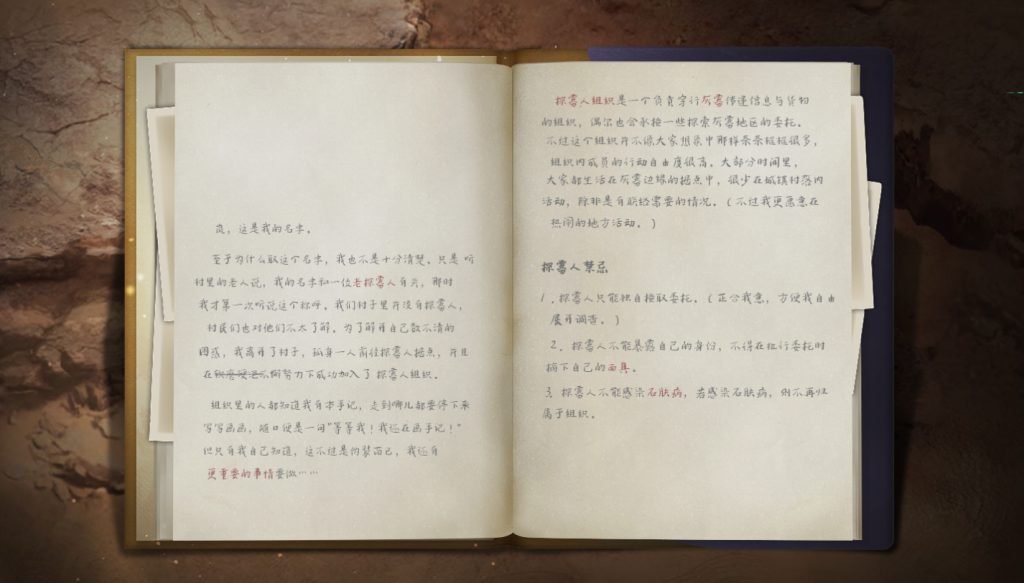 岚，这是我的名字。
至于为什么取这个名字，我也不是十分清楚。只是听
村里的老人说，我的名字和一位老探雾人有关，那时
我才第一次听说这个称呼。我们村子里并没有探雾人，
村民们也对他们不太了解。为了解开自己数不清的
困惑，我离开了村子，孤身一人前往探雾人据点，并且
在努力下成功加入了探雾人组织。
组织里的人都知道我有本手记，走到哪儿都要停下来
写写画画，随口便是一句“等等我！我还在画手记！”
但只有我自己知道，这不过是伪装而已，我还有
更重要的事情要做……
探雾人组织是一个负责穿行灰雾传递信息与货物
的组织，偶尔也会承接一些探索灰雾地区的委托。
不过这个组织并不像大家想象中那样条条框框很多，
组织内成员的行动自由度很高。大部分时间里，
大家都生活在灰雾边缘的据点中，很少在城镇村落内
活动，除非是有职经需要的情况。（不过我更愿意在
热闹的地方活动。）
探雾人禁忌
1. 探雾人只能独自接取委托。（正合我意，方便我自由
展开调查。）
2. 探雾人不能暴露自己的身份，不得在执行委托时
摘下自己的面具。
3. 探雾人不能感染石肤病，若感染石肤病，则不再归
属于组织。